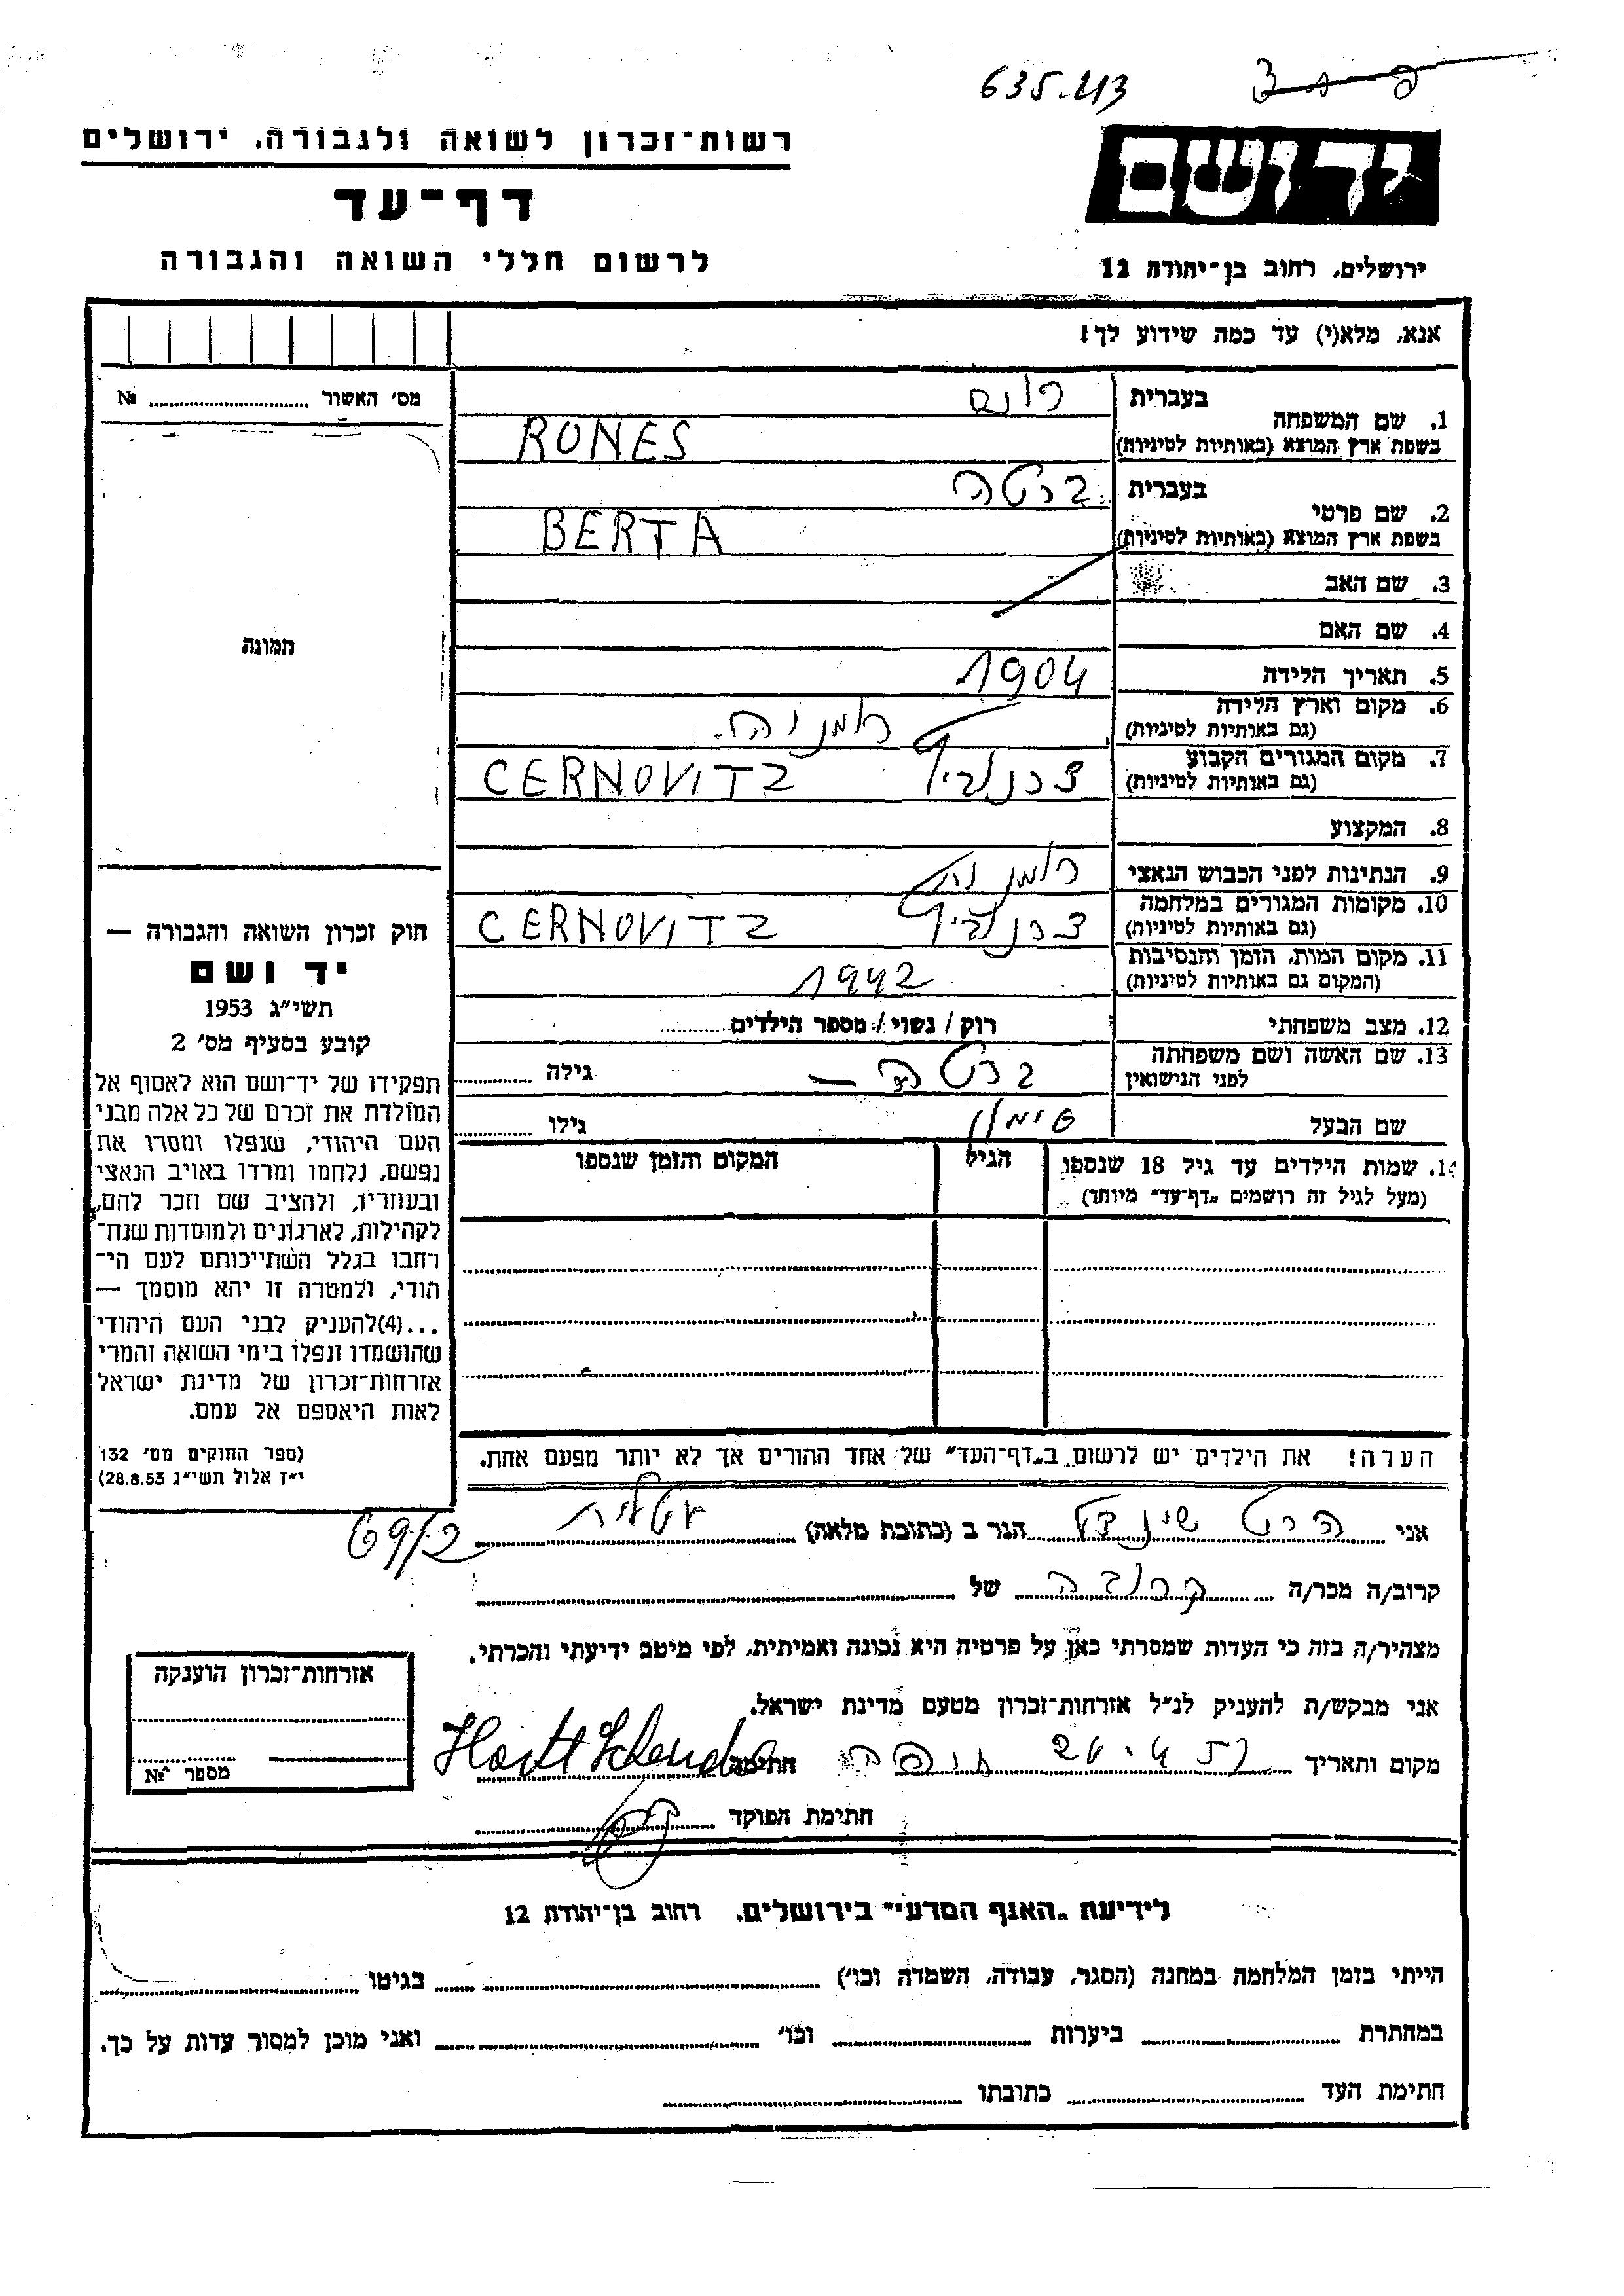 635.413
רשות־זכרון לשואה ולגבורה, ירושלים
יד ושם
דף־עד
לרשום חללי השואה והגבורה
ירושלים, רחוב בן־יהודה 12
אנא, מלא(י) עד כמה שידוע לך!
מס' האשור № ............
תמונה
1. שם המשפחה בעברית רונס
בשפת ארץ המוצא (באותיות לטיניות) RONES
2. שם פרטי בעברית ברטה
בשפת ארץ המוצא (באותיות לטיניות) BERTA
3. שם האב
4. שם האם
5. תאריך הלידה 1904
6. מקום וארץ הלידה רומניה
(גם באותיות לטיניות)
7. מקום המגורים הקבוע צרנוביץ CERNOVITZ
(גם באותיות לטיניות)
8. המקצוע
9. הנתינות לפני הכבוש הנאצי רומניה
10. מקומות המגורים במלחמה צרנוביץ CERNOVITZ
(גם באותיות לטיניות)
11. מקום המות, הזמן והנסיבות 1942
(המקום גם באותיות לטיניות)
12. מצב משפחתי רוק / נשוי / מספר הילדים............
13. שם האשה ושם משפחתה ברטה — גילה ............
לפני הנישואין
שם הבעל סימון גילו ............
14. שמות הילדים עד גיל 18 שנספו הגיל המקום והזמן שנספו
(מעל לגיל זה רושמים „דף־עד" מיוחד)
הערה! את הילדים יש לרשום ב„דף־העד" של אחד ההורים אך לא יותר מפעם אחת.
חוק זכרון השואה והגבורה —
יד ושם
תשי"ג 1953
קובע בסעיף מס' 2
תפקידו של יד־ושם הוא לאסוף אל
המולדת את זכרם של כל אלה מבני
העם היהודי, שנפלו ומסרו את
נפשם, נלחמו ומרדו באויב הנאצי
ובעוזריו, ולהציב שם וזכר להם,
לקהילות, לארגונים ולמוסדות שנח־
רחבו בגלל השתייכותם לעם הי־
הודי, ולמטרה זו יהא מוסמך —
...(4)להעניק לבני העם היהודי
שהושמדו ונפלו בימי השואה והמרי
אזרחות־זכרון של מדינת ישראל
לאות היאספם אל עמם.
(ספר החוקים מס' 132
י"ז אלול תשי"ג 28.8.53)
אני הרט הגר ב (כתובת מלאה) עטלית
69/2
קרוב/ה מכר/ה קרובה של ............
מצהיר/ה בזה כי העדות שמסרתי כאן על פרטיה היא נכונה ואמיתית, לפי מיטב ידיעתי והכרתי.
אני מבקש/ת להעניק לנ"ל אזרחות־זכרון מטעם מדינת ישראל.
מקום ותאריך חיפה חתימה
חתימת הפוקד
אזרחות־זכרון הוענקה
מספר №
לידיעת „האגף המדעי" בירושלים, רחוב בן־יהודה 12
הייתי בזמן המלחמה במחנה (הסגר, עבודה, השמדה וכו') ............ בגיטו ............
במחתרת ............ ביערות ............ וכו' ............ ואני מוכן למסור עדות על כך.
חתימת העד ............ כתובתו ............